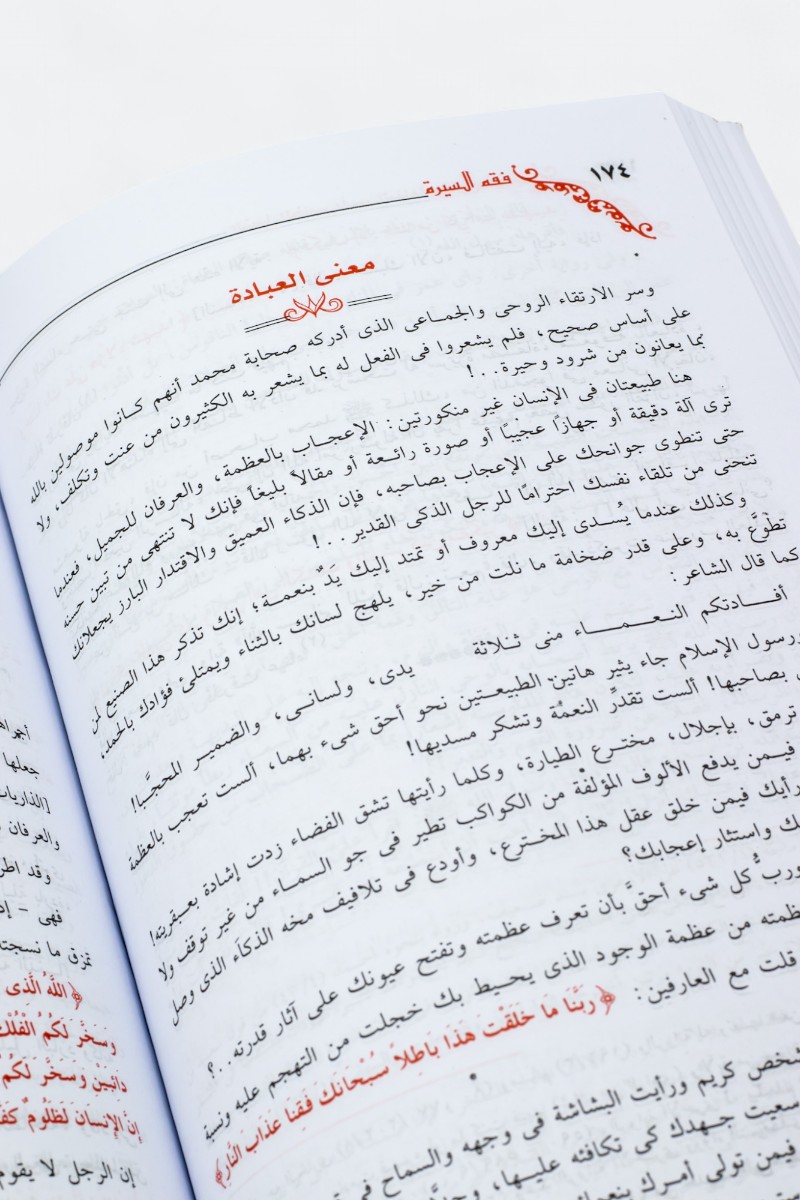 ١٧٤
فقه السيرة
معنى العبادة
وسر الارتقاء الروحى والجماعى الذى أدركه صحابة محمد أنهم كانوا موصولين بالله
على أساس صحيح، فلم يشعروا فى الفعل له بما يشعر به الكثيرون من عنت وتكلف، ولا
بما يعانون من شرود وحيرة..!
هنا طبيعتان فى الإنسان غير منكورتين: الإعجاب بالعظمة، والعرفان للجميل، فعندما
ترى آلة دقيقة أو جهازًا عجيبًا أو صورة رائعة أو مقالاً بليغاً فإنك لا تنتهى من تبين حسنه
حتى تنطوى جوانحك على الإعجاب بصاحبه، فإن الذكاء العميق والاقتدار البارز يجعلانك
تنحنى من تلقاء نفسك احترامًا للرجل الذكى القدير..!
وكذلك عندما يُسدى إليك معروف أو تمتد إليك يَدٌ بنعمة؛ إنك تذكر هذا الصنيع لمن
تطَوَّع به، وعلى قدر ضخامة ما نلت من خير، يلهج لسانك بالثناء ويمتلئ فؤادك بالحمد،
كما قال الشاعر:
أفادتكم النعماء منى ثلاثة يدى، ولسانى، والضمير المحجَّبا!
ورسول الإسلام جاء يثير هاتين الطبيعتين نحو أحق شىء بهما، ألست تعجب بالعظمة
بصاحبها! ألست تقدِّر النعمة وتشكر مسديها!
ترمق، بإجلال، مخترع الطيارة، وكلما رأيتها تشق الفضاء زدت إشادة بعبقريته!
فيمن يدفع الألوف المؤلفة من الكواكب تطير فى جو السماء من غير توقف ولا
رأيك فيمن خلق عقل هذا المخترع، وأودع فى تلافيف مخه الذكاء الذى وصل
واستثار إعجابك؟
ورب كل شىء أحقَّ بأن تعرف عظمته وتفتح عيونك على آثار قدرته..؟
عظمته من عظمة الوجود الذى يحيط بك خجلت من التهجم عليه ونسبة
قلت مع العارفين: ﴿رَبَّنَا مَا خَلَقْتَ هَذَا بَاطِلاً سُبْحَانَكَ فَقِنَا عَذَابَ النَّارِ﴾
شخص كريم ورأيت البشاشة فى وجهه والسماح فى
سعيت جهدك كى تكافئه عليها،
فيمن تولى أمرك
جعلها
[الذاريات
والعرفان
وقد
فهى -
تمزق ما
﴿اللَّهُ الَّذِى
وَسَخَّرَ لَكُمُ الْفُلْكَ
دَائِبَيْنِ وَسَخَّرَ لَكُمُ
إِنَّ الإِنسَانَ لَظَلُومٌ
إن الرجل لا يقوم